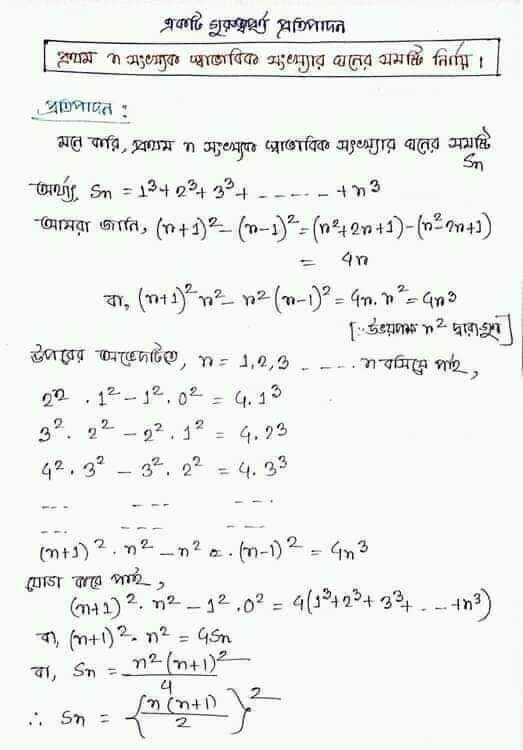 একটি গুরুত্বপূর্ণ প্রতিপাদন
প্রথম n সংখ্যক স্বাভাবিক সংখ্যার ঘনের সমষ্টি নির্ণয়।
প্রতিপাদন :
মনে করি, প্রথম n সংখ্যক স্বাভাবিক সংখ্যার ঘনের সমষ্টি Sn
অর্থাৎ, Sn = 1³ + 2³ + 3³ + ------ + n³
আমরা জানি, (n+1)² - (n-1)² = (n²+2n+1) - (n²-2n+1)
= 4n
বা, (n+1)² n² - n² (n-1)² = 4n. n² = 4n³
[∵ উভয়পক্ষ n² দ্বারা গুণ]
উপরের অভেদটিতে, n = 1, 2, 3 ----- n বসিয়ে পাই,
2² . 1² - 1² . 0² = 4. 1³
3² . 2² - 2² . 1² = 4. 2³
4² . 3² - 3² . 2² = 4. 3³
--- --- ---
--- --- ---
(n+1)² . n² - n² . (n-1)² = 4n³
যোগ করে পাই,
(n+1)² . n² - 1² . 0² = 4(1³+2³+3³+ --- +n³)
বা, (n+1)² . n² = 4Sn
বা, Sn = n²(n+1)² / 4
∴ Sn = {n(n+1) / 2}²